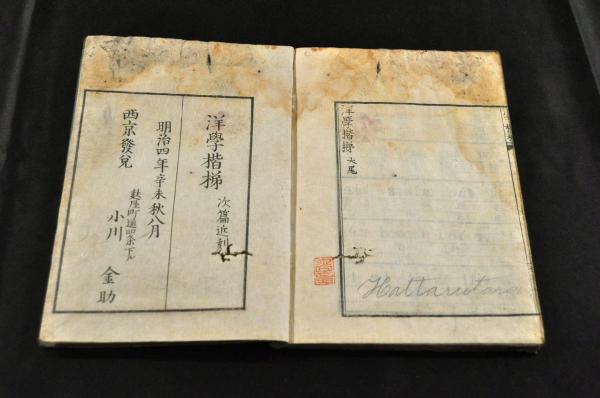 洋學楷梯 大尾
Hattarutaro
洋學楷梯 次篇近刻
明治四年辛未秋八月
西京發兌
麩屋町通四条下ル
小川 金助